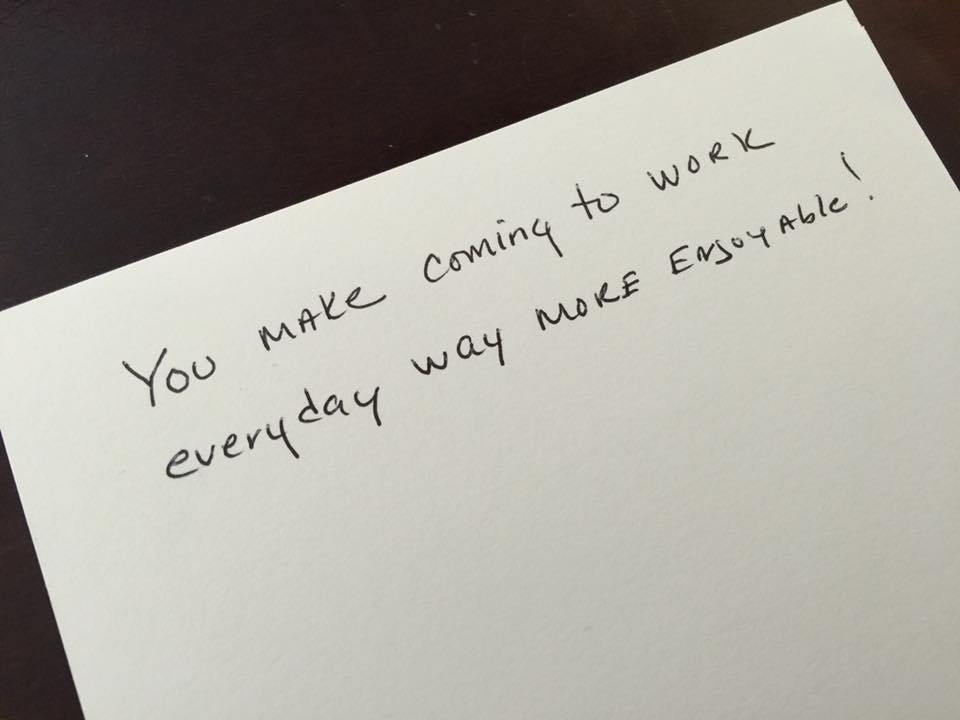 You MAKe coming to WORK
everyday way MORE EnjoyAble!